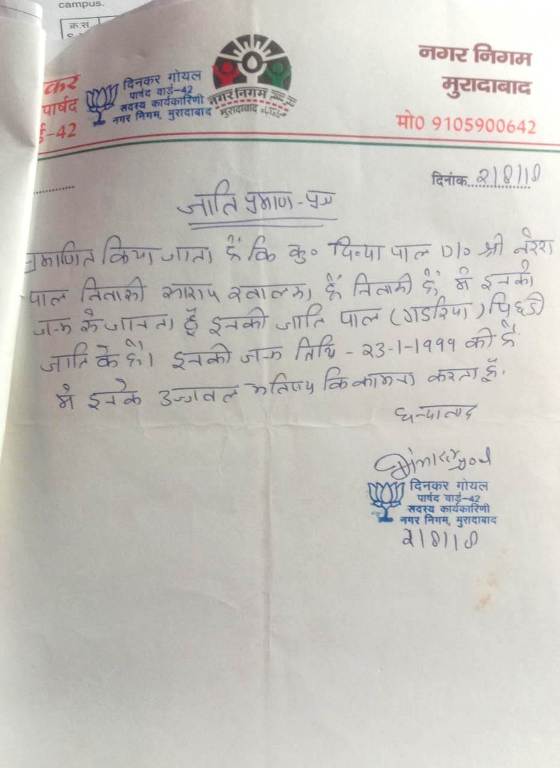 campus.
क्र.स.
कर
पार्षद
र्ड-42
दिनकर गोयल
पार्षद वार्ड-42
सदस्य कार्यकारिणी
नगर निगम, मुरादाबाद
नगर निगम
मुरादाबाद
नगर निगम
मुरादाबाद
मो0 9105900642
दिनांक 2/8/18
जाति प्रमाण-पत्र
प्रमाणित किया जाता है कि कु० D/o श्री नरेश
पाल निवासी सराय है निवासी है, मैं इनको
जानता हूँ इनकी जाति पाल (गडरिया) पिछडी
जाति के है। इनकी जन्म तिथि - 23-1-1999 की है
मैं इनके उज्जवल भविष्य कि कामना करता हूँ.
धन्यवाद
दिनकर गोयल
पार्षद वार्ड-42
सदस्य कार्यकारिणी
नगर निगम, मुरादाबाद
2/8/18